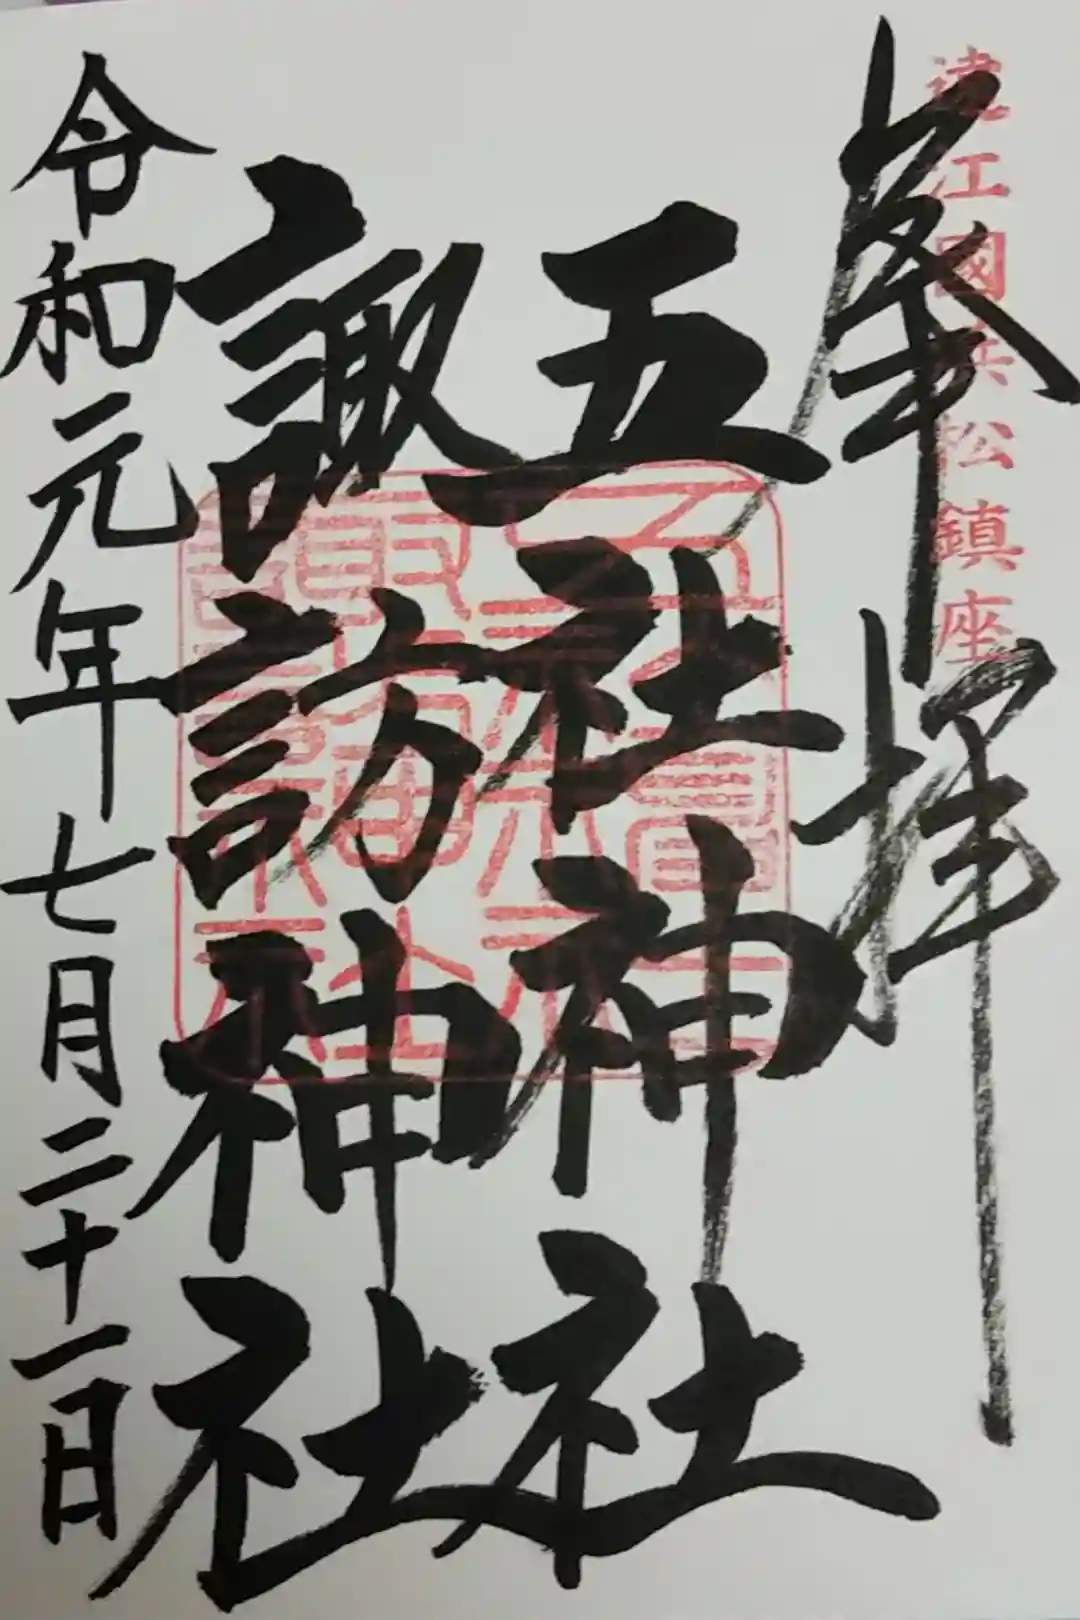 遠江國浜松鎮座
奉拝
五社神社
諏訪神社
令和元年七月二十一日